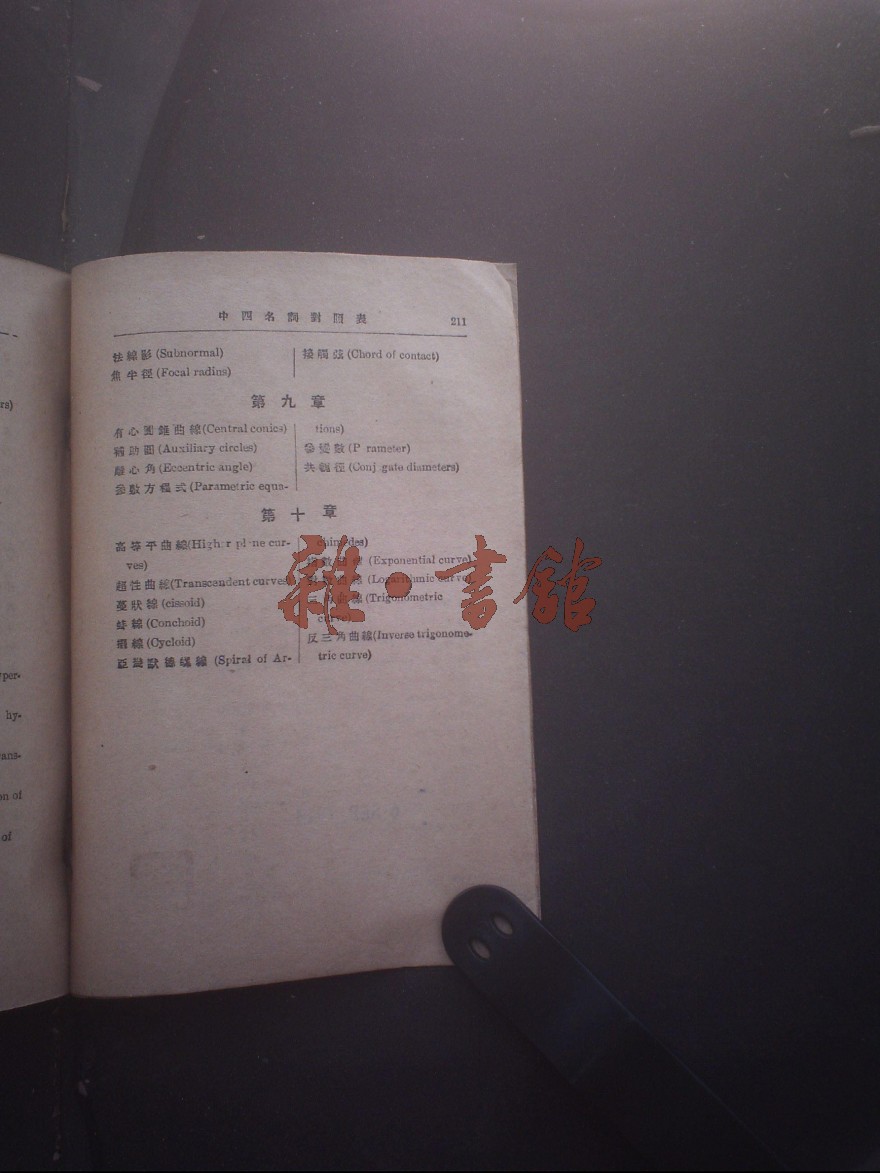 rs)
yper-
hy-
ans-
on of
of
中西名詞對照表 211
法線影 (Subnormal)
焦半徑 (Focal radius)
接觸弦 (Chord of contact)
第九章
有心圓錐曲線 (Central conics)
補助圓 (Auxiliary circles)
離心角 (Eccentric angle)
參數方程式 (Parametric equa-
tions)
參變數 (P rameter)
共軛徑 (Conj gate diameters)
第十章
高等平曲線 (Higher pl ne cur-
ves)
超性曲線 (Transcendent curves)
蔓狀線 (cissoid)
蚌線 (Conchoid)
(Cycloid)
螺線 (Spiral of Ar-
chimedes)
(Exponential curve)
(Logarithmic curve)
(Trigonometric
curve)
反三角曲線 (Inverse trigonome-
tric curve)
雜·書館